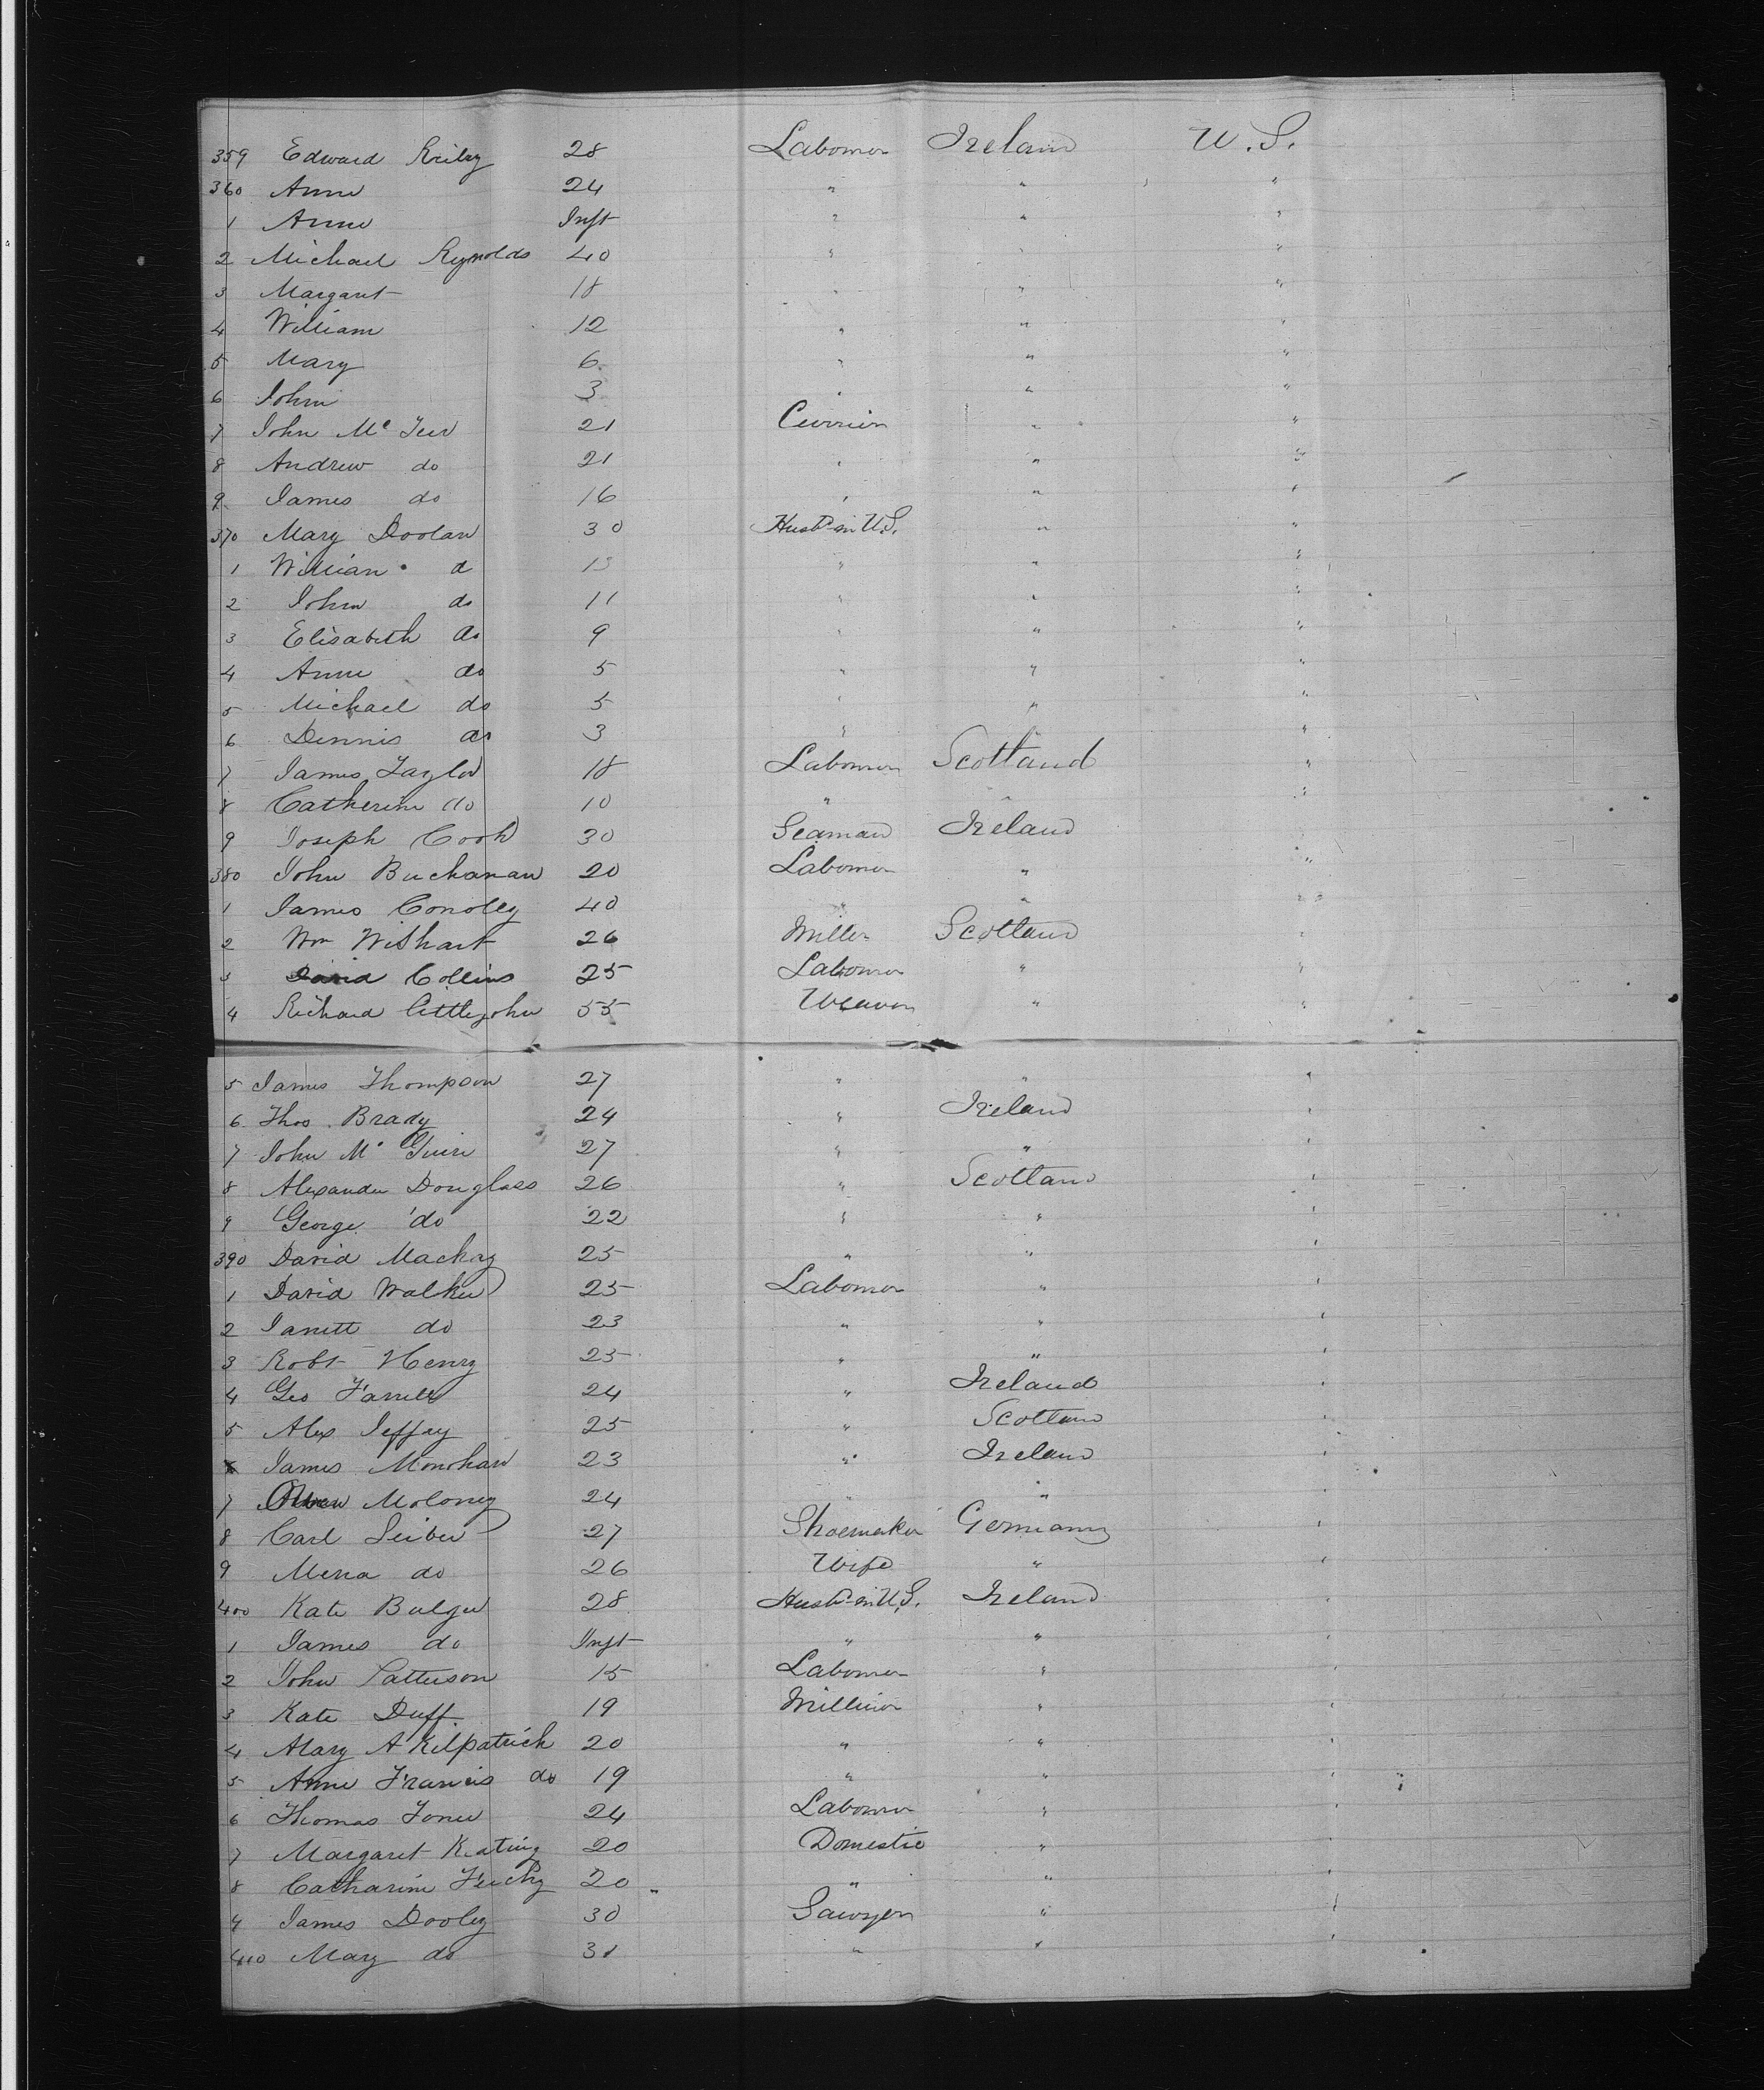 359 Edward Reiley 28 Labourer Ireland U.S.
360 Anne 24 " " "
1 Anne Inft " " "
2 Michael Reynolds 40 " " "
3 Margaret 18 " " "
4 William 12 " " "
5 Mary 6 " " "
6 John 3 " " "
7 John Mc 21 Currier " "
8 Andrew do 21 " " "
9 James do 16 " " "
370 Mary Doolan 30 Husbd in U.S. " "
1 William d 13 " " "
2 John do 11 " " "
3 Elisabeth do 9 " " "
4 Anne do 5 " " "
5 Michael do 5 " " "
6 Dennis do 3 " " "
7 James Taylor 18 Labourer Scotland "
8 Catherine do 10 " " "
9 Joseph Cook 30 Seaman Ireland "
380 John Buchanan 20 Labourer " "
1 James Conolly 40 " " "
2 Wm Wishart 26 Miller Scotland "
3 David Collins 25 Labourer " "
4 Richard Littlejohn 55 Weaver " "
5 James Thompson 27 " " "
6 Thos. Brady 24 " Ireland "
7 John Mc Guire 27 " " "
8 Alexander Douglass 26 " Scotland "
9 George do 22 " " "
390 David Mackay 25 " " "
1 David Walker 25 Labourer " "
2 Janett do 23 " " "
3 Robt Henry 25 " " "
4 Geo Farrell 24 " Ireland "
5 Alex Jeffay 25 " Scotland "
James Monohan 23 " Ireland "
7 Owen Moloney 24 " " "
8 Carl Seiber 27 Shoemaker Germany "
9 Mena do 26 Wife " "
400 Kate Bulger 28 Husbd in U.S. Ireland "
1 James do Inft " " "
2 John Patterson 15 Labourer " "
3 Kate Duff 19 Milliner " "
4 Mary A Kilpatrick 20 " " "
5 Anne Francis do 19 " " "
6 Thomas 24 Labourer " "
7 Margaret Keating 20 Domestic " "
8 Catharine 20 " " "
9 James Dooley 30 Sawyer " "
410 Mary do 31 " " "